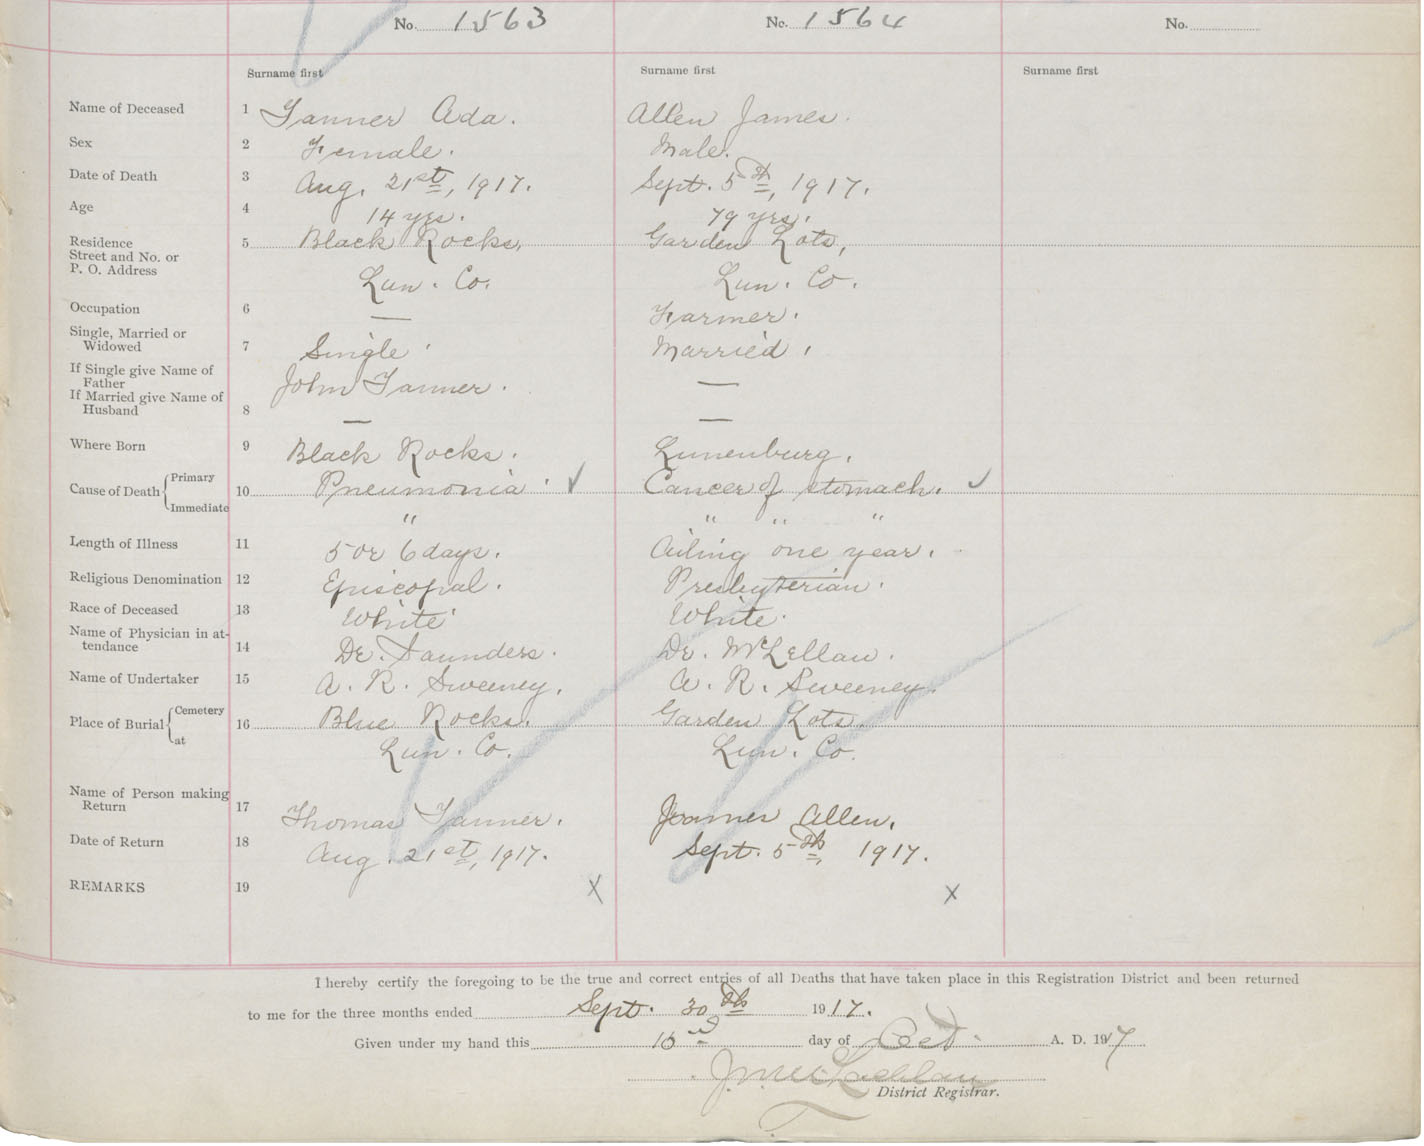 No. 1563 No. 1564 No.
Surname first Surname first Surname first
Name of Deceased 1 Tanner Ada. Allen James.
Sex 2 Female. Male.
Date of Death 3 Aug. 21st, 1917. Sept. 5th, 1917.
Age 4 14 yrs. 79 yrs.
Residence 5 Black Rocks, Garden Lots,
Street and No. or
P. O. Address Lun. Co. Lun. Co.
Occupation 6 — Farmer.
Single, Married or
Widowed 7 Single. Married.
If Single give Name of
Father John Tanner. —
If Married give Name of
Husband 8 — —
Where Born 9 Black Rocks. Lunenburg.
Primary
Cause of Death 10 Pneumonia. ✓ Cancer of stomach. ✓
Immediate " " " "
Length of Illness 11 5 or 6 days. Ailing one year.
Religious Denomination 12 Episcopal. Presbyterian.
Race of Deceased 13 White White.
Name of Physician in at-
tendance 14 Dr. Saunders. Dr. McLellan.
Name of Undertaker 15 A. R. Sweeney. A. R. Sweeney.
Cemetery
Place of Burial 16 Blue Rocks. Garden Lots.
at Lun. Co. Lun. Co.
Name of Person making
Return 17 Thomas Tanner. James Allen.
Date of Return 18 Aug. 21st, 1917. Sept. 5th, 1917.
REMARKS 19 X X
I hereby certify the foregoing to be the true and correct entries of all Deaths that have taken place in this Registration District and been returned
to me for the three months ended Sept. 30th 1917.
Given under my hand this day of Oct. A. D. 1917
District Registrar.